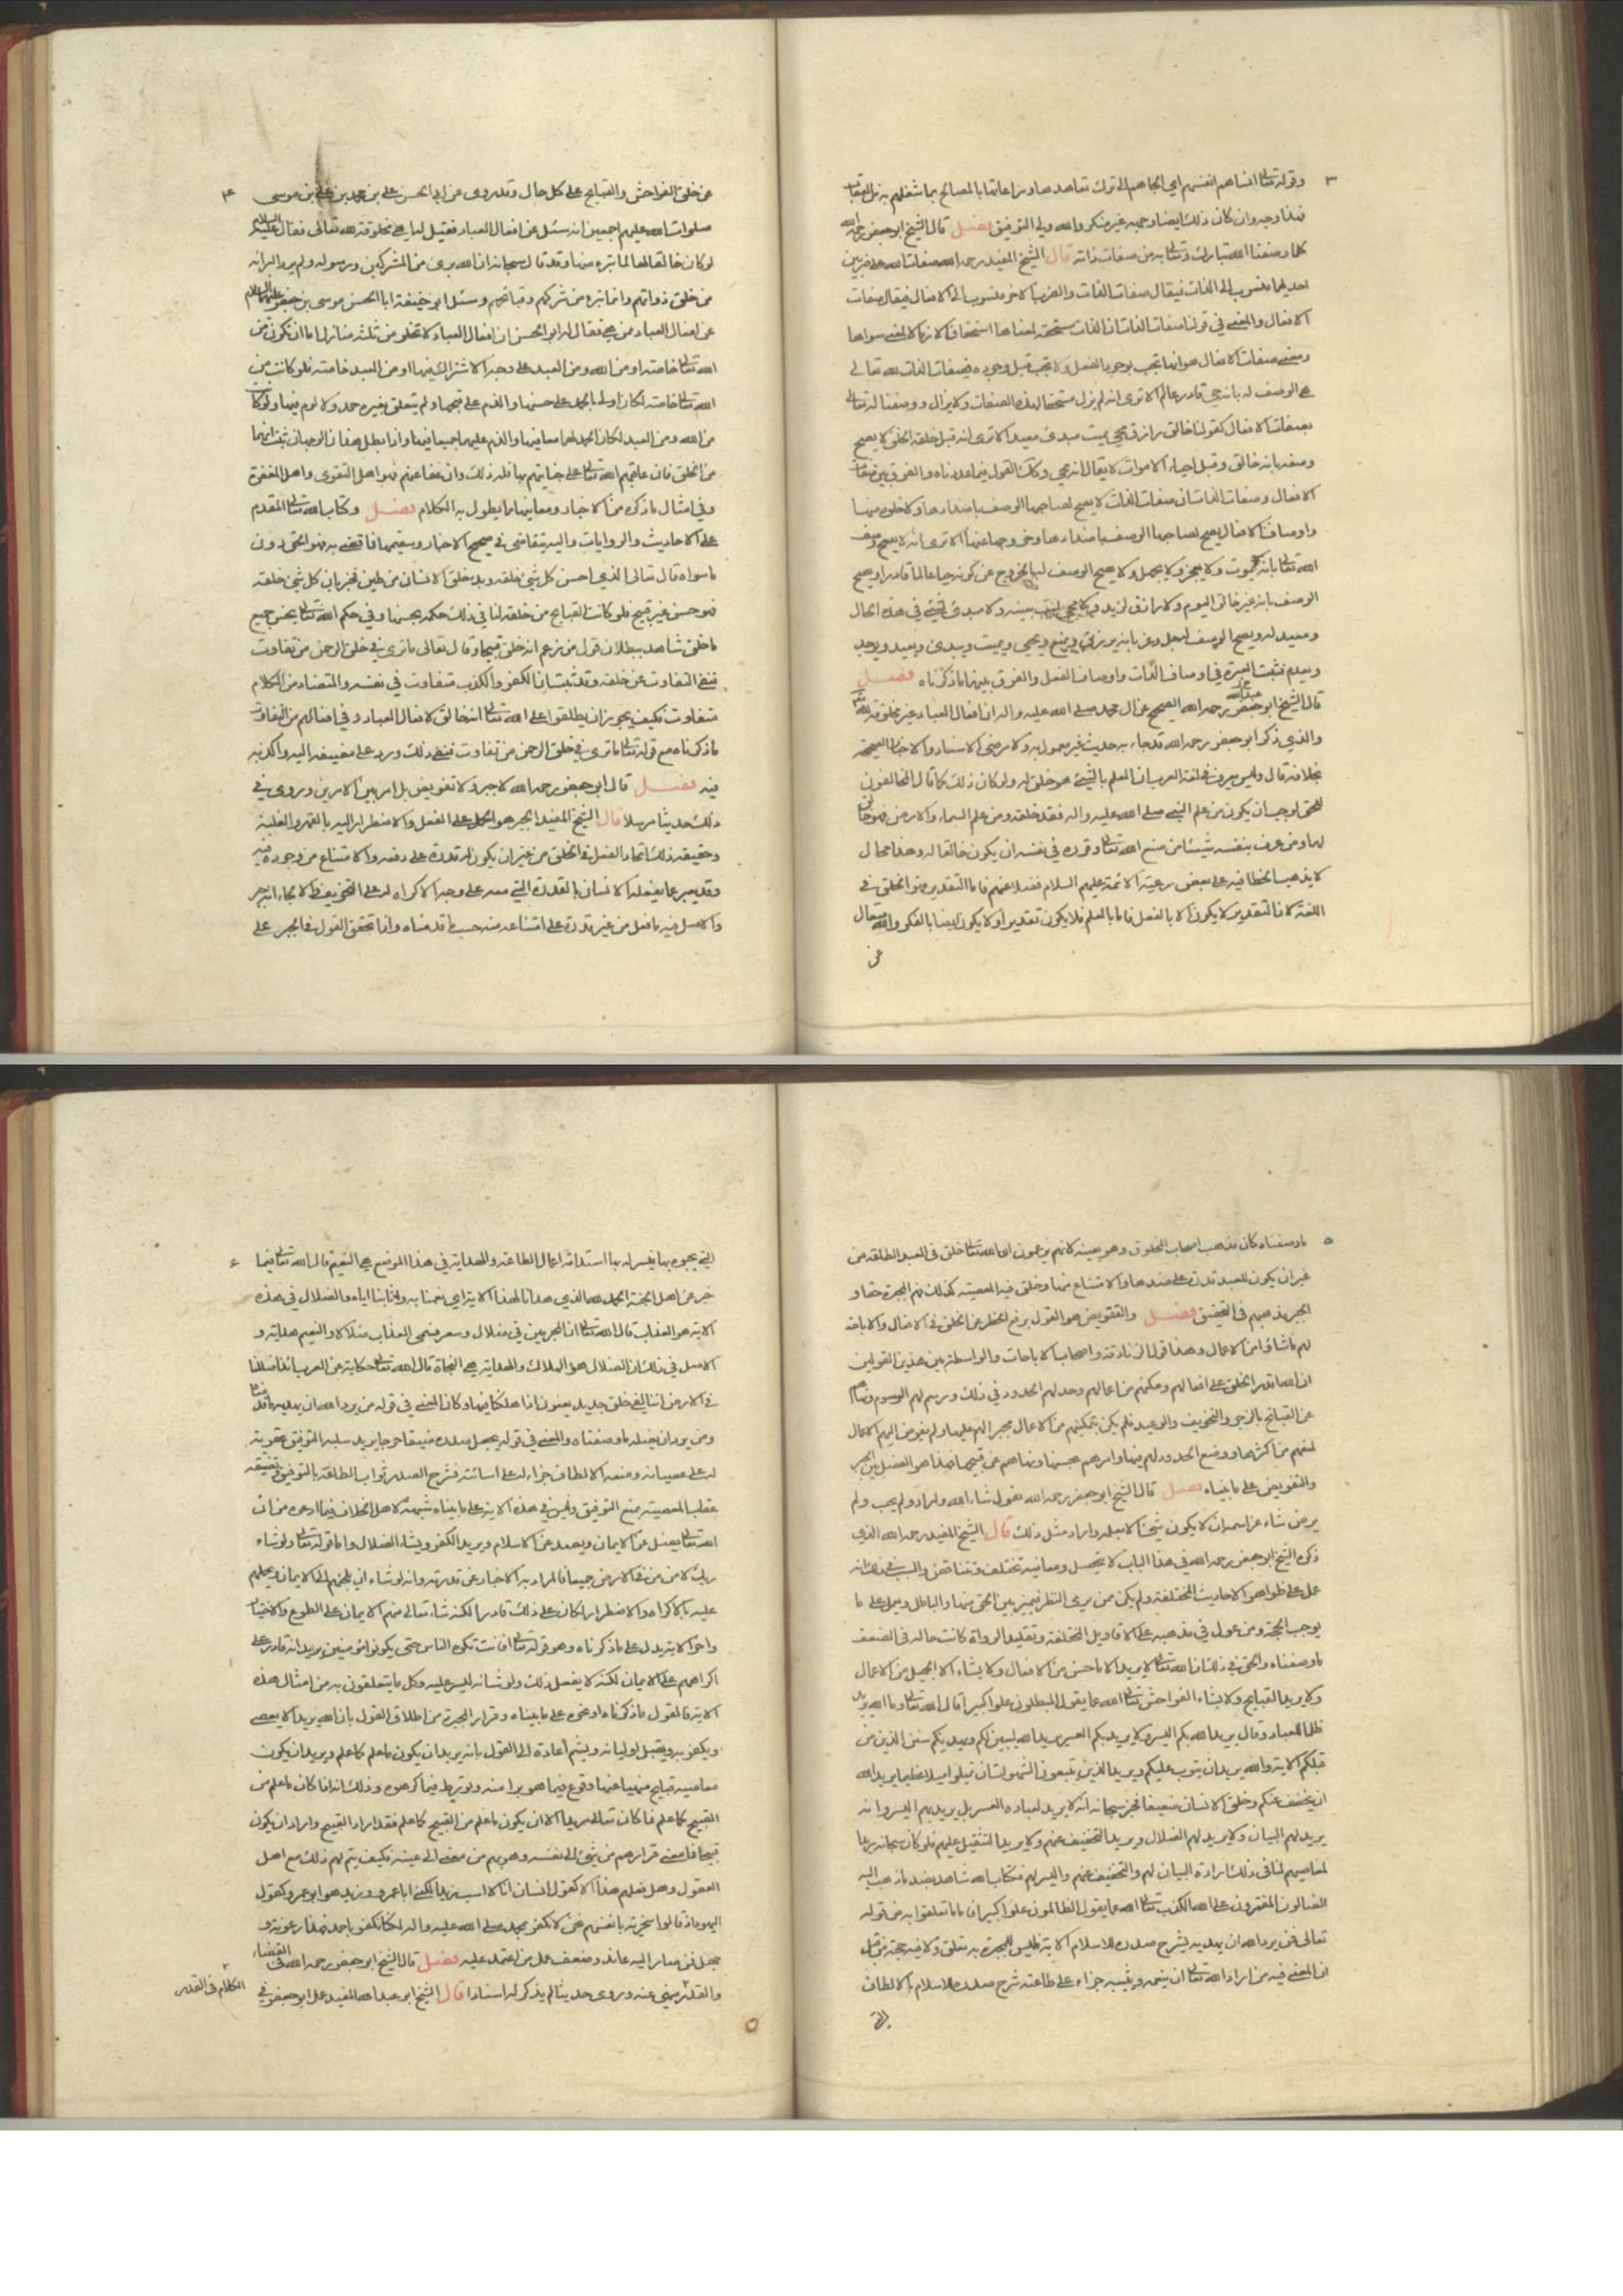 ٣
وقوله تعالى انساهم انفسهم اي الجاهم الى ترك تعاهدها ومراعاتها بالمصالح بما شغلهم به من العقاب
فهذا وجه وان كان ذلك ايضا وجه غير منكر والله ولي التوفيق فصل قال الشيخ ابو جعفر رحمه الله
كلما وصفنا الله تبارك وتعالى به من صفات ذاته قال الشيخ المفيد رحمه الله صفات الله على ضربين
احدهما منسوب الى الذات فيقال صفات الذات والضرب الاخر منسوب الى الافعال فيقال صفات
الافعال والمعنى في قولنا صفات الذات ان الذات مستحقة لمعناها استحقاقا لازما لا لمعنى سواها
ومعنى صفات الافعال هو انها تجب بوجود الفعل ولا تجب قبل وجوده فصفات الذات لله تعالى
هي الوصف له بانه حي قادر عالم الا ترى انه لم يزل مستحقا لهذه الصفات ولا يزال ووصفنا له تعالى
بصفات الافعال كقولنا خالق رازق محيي مميت مبدئ معيد الا ترى انه قبل خلقه الخلق لا يصح
وصفه بانه خالق وقبل احياء الاموات لا يقال انه محيي وكذلك القول فيما عددناه والفرق بين صفات
الافعال وصفات الذات ان صفات الذات لا يصح لصاحبها الوصف باضدادها ولا خلوه منها
واوصاف الافعال يصح لصاحبها الوصف باضدادها وخروجه عنها الا ترى انه لا يصح وصف
الله تعالى بانه يموت ولا يعجز ولا يجهل ولا يصح الوصف له بالخروج عن كونه حيا عالما قادرا ويصح
الوصف بانه غير خالق اليوم ولا رازق لزيد ولا محيي لميت بعينه ولا مبدئ لشيء في هذه الحال
ومعيد له ويصح الوصف له جل وعز بانه يرزق ويمنع ويحيي ويميت ويبدئ ويعيد ويوجد
ويعدم فثبت العبرة في اوصاف الذات واوصاف الفعل والفرق بينهما ما ذكرناه فصل
قال الشيخ ابو جعفر رحمه الله الصحيح عن آل محمد صلى الله عليه واله ان افعال العباد غير مخلوقة لله تعالى
والذي ذكر ابو جعفر رحمه الله قد جاء به حديث غير معمول به ولا مرضي الاسناد والاخبار الصحيحة
بخلافه قال وليس يعرف في لغة العرب ان العلم بالشيء هو خلق له ولو كان ذلك كما قال المخالفون
للحق لوجب ان يكون من علم النبي صلى الله عليه واله فقد خلقه ومن علم السماء والارض فهو خالق
لهما ومن عرف بنفسه شيئا من صنع الله تعالى وقرره في نفسه ان يكون خالقا له وهذا محال
لا يذهب الخطا فيه على بعض رعية الائمة عليهم السلام فضلا عنهم فاما التقدير فهو الخلق في
اللغة لان التقدير لا يكون الا بالفعل فاما بالعلم فلا يكون تقديرا ولا يكون ايضا بالفكر والله متعال
عن
٤
عن خلق الفواحش والقبايح على كل حال وقد روى عن ابي الحسن علي بن محمد بن علي بن موسى
صلوات الله عليهم اجمعين انه سئل عن افعال العباد فقيل له اهي مخلوقة لله تعالى فقال عليه السلام
لو كان خالقا لها لما تبرء منها وقد قال سبحانه ان الله برئ من المشركين ورسوله ولم يرد البرائة
من خلق ذواتهم وانما تبرء من شركهم وقبائحهم وسئل ابو حنيفة ابا الحسن موسى بن جعفر عليهما السلام
عن افعال العباد ممن هي فقال له ابو الحسن ان افعال العباد لا تخلو من ثلثة منازل اما ان تكون من
الله تعالى خاصة او من الله ومن العبد على وجه الاشتراك فيها او من العبد خاصة فلو كانت من
الله تعالى خاصة لكان اولى بالحمد على حسنها والذم على قبحها ولم يتعلق بغيره حمد ولا لوم فيها ولو كانت
من الله ومن العبد لكان الحمد لهما معا فيها والذم عليهما جميعا فيها واذا بطل هذان الوجهان ثبت انها
من الخلق فان عاقبهم الله تعالى على جنايتهم بها فله ذلك وان عفا عنهم فهو اهل التقوى واهل المغفرة
وفي امثال ما ذكره من الاخبار ومعانيها ما يطول به الكلام فصل وكتاب الله تعالى المقدم
على الاحاديث والروايات واليه يتقاضى في صحيح الاخبار وسقيمها فما قضى به فهو الحق دون
ما سواه قال تعالى الذي احسن كل شيء خلقه وبدء خلق الانسان من طين فخبر بان كل شيء خلقه
فهو حسن غير قبيح فلو كانت القبايح من خلقه لنافى ذلك حكمه بحسنها وفي حكم الله تعالى بحسن جميع
ما خلق شاهد ببطلان قول من زعم انه خلق قبيحا وقال تعالى ما ترى في خلق الرحمن من تفاوت
فنفى التفاوت عن خلقه وقد ثبت ان الكفر والكذب متفاوت في نفسه والمتضاد من الكلام
متفاوت فكيف يجوز ان يطلقوا على الله تعالى انه خالق لافعال العباد وفي افعالهم من التفاوت
ما ذكرناه مع قوله تعالى ما ترى في خلق الرحمن من تفاوت فنفى ذلك ورد على مضيفه اليه واكذبه
فيه فصل قال ابو جعفر رحمه الله لا جبر ولا تفويض بل امر بين الامرين وروى في
ذلك حديثا مرسلا قال الشيخ المفيد الجبر هو الحمل على الفعل والاضطرار اليه بالقهر والغلبة
وحقيقة ذلك ايجاد الفعل في الخلق من غير ان يكون له قدرة على دفعه والامتناع من وجوده فيه
وقد يعبر عما يفعله الانسان بالقدرة التي معه على وجه الاكراه له على التخويف والالجاء انه جبر
والاصل فيه ما فعل من غير قدرة على امتناعه منه حسب ما قدمناه واذا تحقق القول في الجبر على
٥
ما وصفناه كان مذهب اصحاب المخلوق وهو بعينه لانهم يزعمون ان الله تعالى خلق في العبد الطاعة من
غير ان يكون للعبد قدرة على ضدها والامتناع منها وخلق فيه المعصية كذلك فهم المجبرة حقا و
الجبر مذهبهم في التحقيق فصل والتفويض هو القول برفع الحظر عن الخلق في الافعال والاباحة
لهم ما شاؤا من الاعمال وهذا قول الزنادقة واصحاب الاباحات والواسطة بين هذين القولين
ان الله اقدر الخلق على افعالهم ومكنهم من اعمالهم وحد لهم الحدود في ذلك ورسم لهم الرسوم ونهاهم
عن القبايح بالزجر والتخويف والوعيد فلم يكن بتمكينهم من الاعمال مجبرا لهم عليها ولم يفوض اليهم الاعمال
لمنعهم من اكثرها ووضع الحدود لهم فيها وامرهم بحسنها ونهاهم عن قبيحها فهذا هو الفصل بين الجبر
والتفويض على ما بيناه فصل قال الشيخ ابو جعفر رحمه الله نقول شاء الله واراد ولم يحب ولم
يرض شاء عز اسمه ان لا يكون شيء الا بعلمه واراد مثل ذلك قال الشيخ المفيد رحمه الله الذي
ذكره الشيخ ابو جعفر رحمه الله في هذا الباب لا يتحصل ومعانيه تختلف وتتناقض والسبب في ذلك انه
عمل على ظواهر الاحاديث المختلفة ولم يكن ممن يرى النظر فيميز بين الحق منها والباطل ويعمل على ما
يوجب الحجة ومن عول في مذهبه على الاقاويل المختلفة وتقليد الرواة كانت حاله في الضعف
ما وصفناه والحق في ذلك ان الله تعالى لا يريد الا ما حسن من الافعال ولا يشاء الا الجميل من الاعمال
ولا يريد القبايح ولا يشاء الفواحش تعالى الله عما يقول المبطلون علوا كبيرا قال الله تعالى وما الله يريد
ظلما للعباد وقال يريد الله بكم اليسر ولا يريد بكم العسر يريد الله ليبين لكم ويهديكم سنن الذين من
قبلكم الاية والله يريد ان يتوب عليكم ويريد الذين يتبعون الشهوات ان تميلوا ميلا عظيما يريد الله
ان يخفف عنكم وخلق الانسان ضعيفا فخبر سبحانه انه لا يريد لعباده العسر بل يريد بهم اليسر وانه
يريد لهم البيان ولا يريد لهم الضلال ويريد التخفيف عنهم ولا يريد التثقيل عليهم فلو كان سبحانه مريدا
لمعاصيهم لنافى ذلك ارادة البيان لهم والتخفيف عنهم واليسر لهم فكتاب الله شاهد بضد ما ذهب اليه
الضالون المفترون على الله الكذب تعالى الله عما يقول الظالمون علوا كبيرا فاما ما تعلقوا به من قوله
تعالى فمن يرد الله ان يهديه يشرح صدره للاسلام الاية فليس للمجبرة به تعلق ولا فيه حجة من قبل
ان المعنى فيه من اراد الله تعالى ان ينعمه ويثيبه جزاء على طاعته شرح صدره للاسلام بالالطاف
التي
٦
التي يحبوه بها فيسر له بها استدامة اعمال الطاعة والهداية في هذا الموضع هي النعيم قال الله تعالى فيما
خبر عن اهل الجنة الحمد لله الذي هدانا لهذا الاية اي نعمنا به واثابنا اياه والضلال في هذه
الاية هو العذاب قال الله تعالى ان المجرمين في ضلال وسعر فسمى العذاب ضلالا والنعيم هداية و
الاصل في ذلك ان الضلال هو الهلاك والهداية هي النجاة قال الله تعالى حكاية عن العرب ائذا ضللنا
في الارض ائنا لفي خلق جديد يعنون اذا هلكنا فيها وكان المعنى في قوله من يرد الله ان يهديه ما قدمناه
ومن يرد ان يضله ما وصفناه والمعنى في قوله يجعل صدره ضيقا حرجا يريد سلبه التوفيق عقوبة
له على عصيانه ومنعه الالطاف جزاء له على اسائته فشرح الصدر ثواب الطاعة بالتوفيق وتضييقه
عقاب المعصية بمنع التوفيق وليس في هذه الاية على ما بيناه شبهة لاهل الخلاف فيما ادعوه من ان
الله تعالى يضل عن الايمان ويصد عن الاسلام ويريد الكفر ويشاء الضلال واما قوله تعالى ولو شاء
ربك لامن من في الارض جميعا فالمراد به الاخبار عن قدرته وانه لو شاء ان يلجئهم الى الايمان ويحملهم
عليه بالاكراه والاضطرار لكان على ذلك قادرا لكنه شاء تعالى منهم الايمان على الطوع والاختيار
واخر الاية يدل على ما ذكرناه وهو قوله تعالى افانت تكره الناس حتى يكونوا مؤمنين يريد انه قادر على
اكراههم على الايمان لكنه لا يفعل ذلك ولو شائه لتيسر عليه وكل ما يتعلقون به من امثال هذه
الاية فالقول ما ذكرناه او نحوه على ما بيناه وفرار المجبرة من اطلاق القول بان الله يريد ان يعصى
ويكفر به ويقتل اوليائه ويشتم اعادة الى القول بانه يريد ان يكون ما علم كما علم ويريد ان يكون
معاصيه قبايح منهيا عنها وقوع فيما هربوا منه وتورط فيما كرهوه وذلك انه اذا كان ما علم من
القبيح كما علم فكان تعالى مريدا لان يكون ما علم من القبيح كما علم فقد اراد القبيح واراد ان يكون
قبيحا فما معنى فرارهم من شيء الى نفسه وهربهم من معنى الى عينه فكيف يتم لهم ذلك مع اهل
العقول وهل قولهم هذا الا كقول انسان انا لا اسب زيدا لكنني ابا عمرو وزيد هو ابو عمرو وكقول
اليهود اذ قالوا سخرية بانفسهم نحن لا نكفر بمحمد صلى الله عليه واله لكنا نكفر باحمد فهذا رعونة و
جهل ممن صار اليه عاند وضعف عمل من اعتمد عليه فصل قال الشيخ ابو جعفر رحمه الله في القضاء
والقدر منهي عنه وروى حديثا لم يذكر له اسنادا قال الشيخ ابو عبد الله المفيد عمل ابو جعفر في
الكلام في القدر